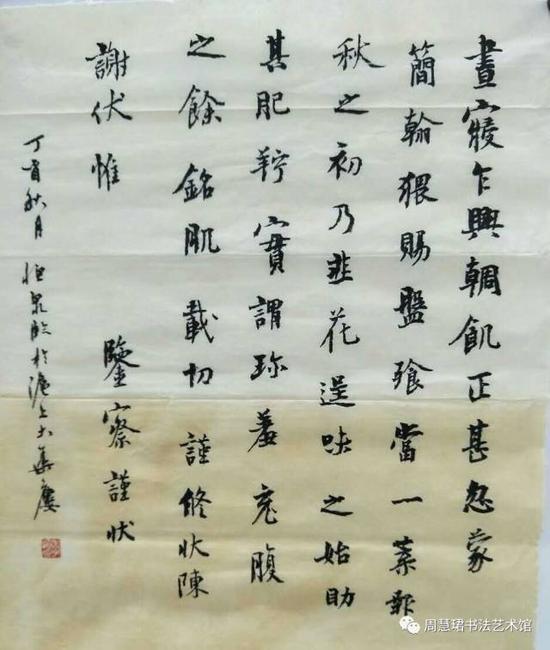 晝寢乍興輖飢正甚忽蒙
簡翰猥賜盤飧當一葉報
秋之初乃韭花逞味之始助
其肥羜實謂珍羞充腹
之餘銘肌載切謹修狀陳
謝伏惟 鑒察謹狀
丁酉秋月恒泉臨於滬上大華廬
周慧珺书法艺术馆